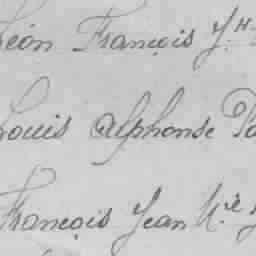 Léon François J.H
Louis Alphonse
François Jean M.ie